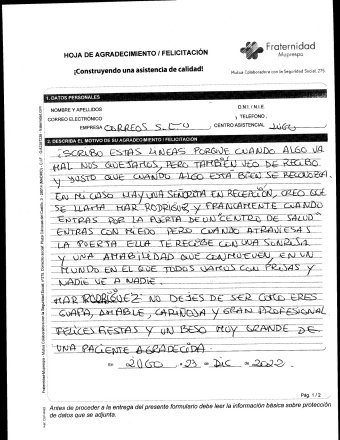 HOJA DE AGRADECIMIENTO / FELICITACIÓN
¡Construyendo una asistencia de calidad!
Fraternidad
Muprespa
Mutua Colaboradora con la Seguridad Social, 275
1. DATOS PERSONALES
NOMBRE Y APELLIDOS
D.N.I. / N.I.E.
CORREO ELECTRÓNICO
TELÉFONO
EMPRESA CORREOS S.E.
CENTRO ASISTENCIAL LUGO
2. DESCRIBA EL MOTIVO DE SU AGRADECIMIENTO / FELICITACIÓN
¡SCRIBO ESTAS LINEAS PORQUE CUANDO ALGO VA
MAL NOS QUEJAMOS, PERO TAMBIÉN VEO DE RECIBO
Y JUSTO QUE CUANDO ALGO ESTÁ BIEN SE RECONOZCA.
EN MI CASO HAY UNA SEÑORITA EN RECEPCIÓN, CREO QUE
SE LLAMA MAR RODRIGUEZ Y FRANCAMENTE CUANDO
ENTRAS POR LA PUERTA DE UN "CENTRO DE SALUD"
ENTRAS CON MIEDO PERO CUANDO ATRAVIESAS
LA PUERTA ELLA TE RECIBE CON UNA SONRISA
Y UNA AMABILIDAD QUE CONMUEVEN, EN UN
MUNDO EN EL QUE TODOS VAMOS CON PRISAS Y
NADIE VE A NADIE.
MAR RODRÍGUEZ NO DEJES DE SER COMO ERES
GUAPA, AMABLE, CARIÑOSA Y GRAN PROFESIONAL
FELICES FIESTAS Y UN BESO MUY GRANDE DE
UNA PACIENTE AGRADECIDA.
= LUGO = 23 = DIC = 2022
Pág. 1 / 2
Antes de proceder a la entrega del presente formulario debe leer la información básica sobre protección
de datos que se adjunta.